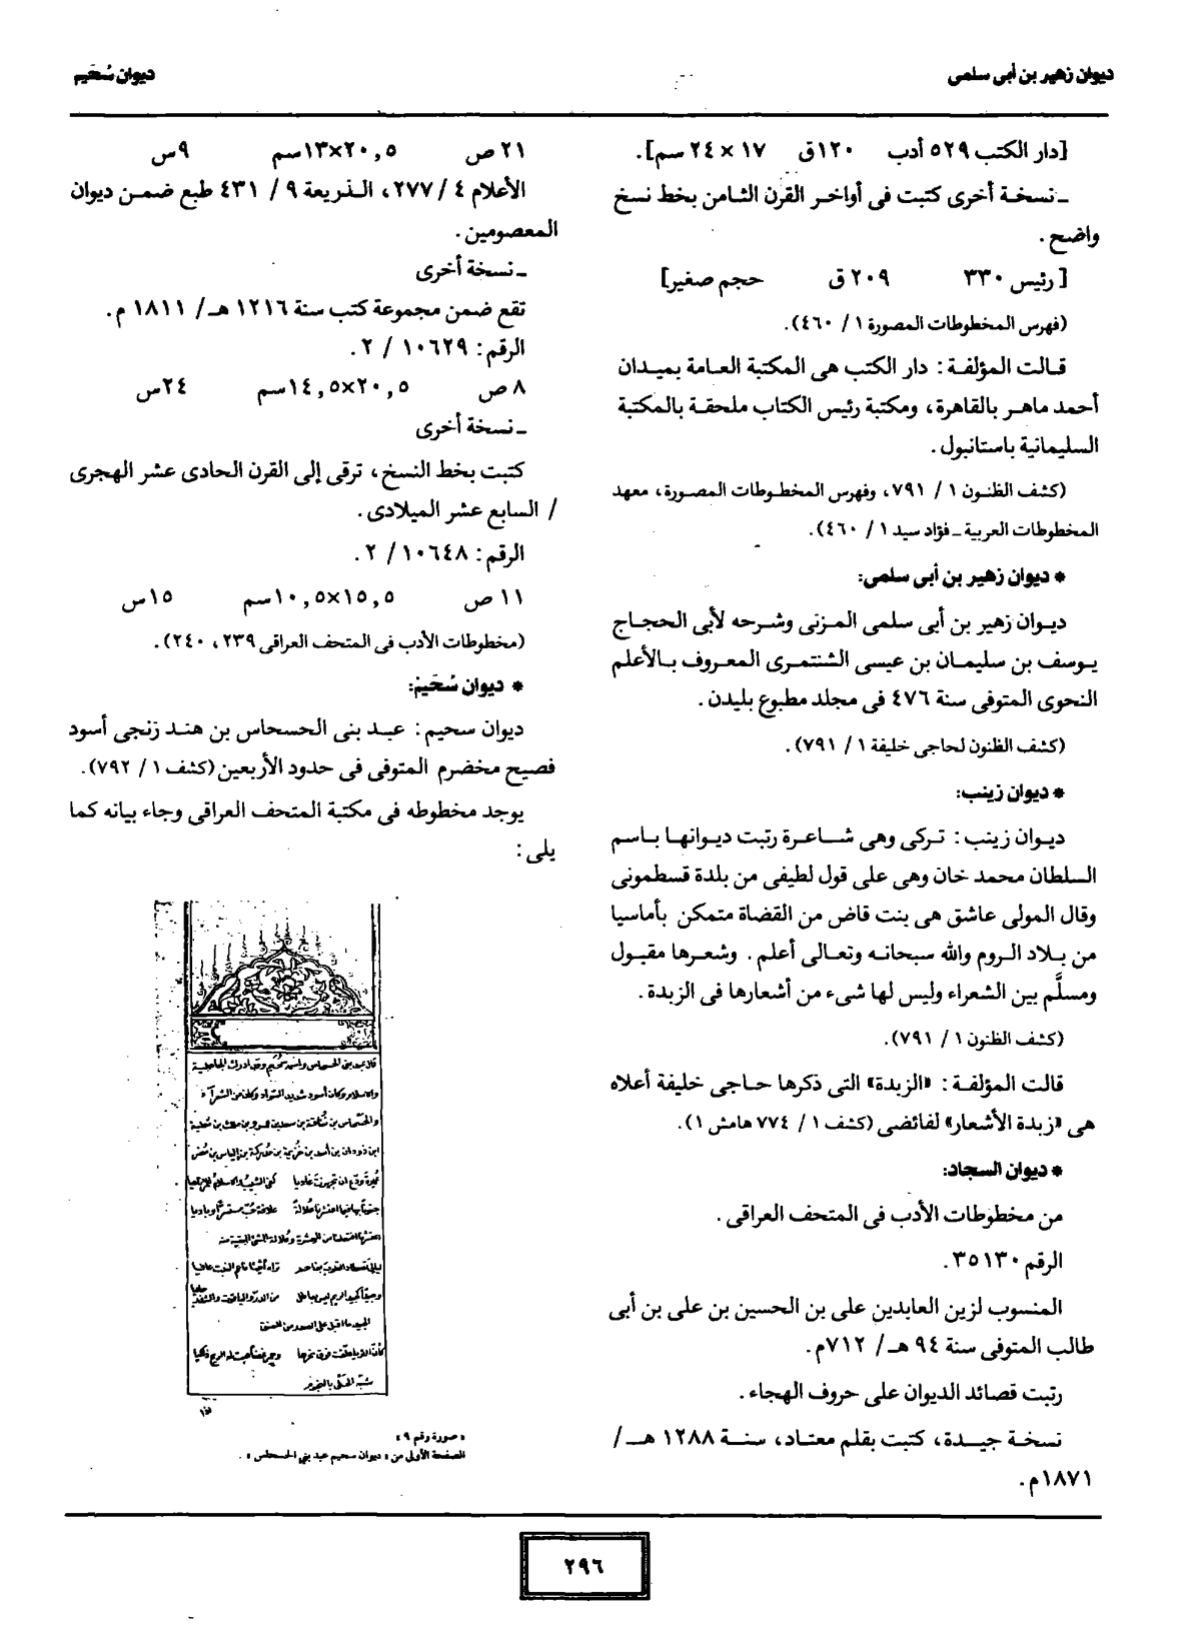 ديوان زهير بن أبى سلمى
ديوان سُحَيم
[دار الكتب ٥٢٩ أدب ١٢٠ق ١٧ × ٢٤ سم].
ـ نسخة أخرى كتبت فى أواخر القرن الثامن بخط نسخ
واضح.
[ رئيس ٣٣٠ ٢٠٩ ق حجم صغير]
(فهرس المخطوطات المصورة ١ / ٤٦٠).
قالت المؤلفة: دار الكتب هى المكتبة العامة بميدان
أحمد ماهر بالقاهرة، ومكتبة رئيس الكتاب ملحقة بالمكتبة
السليمانية باستانبول.
(كشف الظنون ١ / ٧٩١، وفهرس المخطوطات المصورة، معهد
المخطوطات العربية ـ فؤاد سيد ١ / ٤٦٠).
* ديوان زهير بن أبى سلمى:
ديوان زهير بن أبى سلمى المزنى وشرحه لأبى الحجاج
يوسف بن سليمان بن عيسى الشنتمرى المعروف بالأعلم
النحوى المتوفى سنة ٤٧٦ فى مجلد مطبوع بليدن.
(كشف الظنون لحاجى خليفة ١ / ٧٩١).
* ديوان زينب:
ديوان زينب: تركى وهى شاعرة رتبت ديوانها باسم
السلطان محمد خان وهى على قول لطيفى من بلدة قسطمونى
وقال المولى عاشق هى بنت قاض من القضاة متمكن بأماسيا
من بلاد الروم والله سبحانه وتعالى أعلم. وشعرها مقبول
ومسلَّم بين الشعراء وليس لها شىء من أشعارها فى الزبدة.
(كشف الظنون ١ / ٧٩١).
قالت المؤلفة: «الزبدة» التى ذكرها حاجى خليفة أعلاه
هى «زبدة الأشعار» لفائضى (كشف ١ / ٧٧٤ هامش ١).
* ديوان السجاد:
من مخطوطات الأدب فى المتحف العراقى.
الرقم ٣٥١٣٠.
المنسوب لزين العابدين على بن الحسين بن على بن أبى
طالب المتوفى سنة ٩٤ هـ/ ٧١٢م.
رتبت قصائد الديوان على حروف الهجاء.
نسخة جيدة، كتبت بقلم معتاد، سنة ١٢٨٨ هـ/
١٨٧١م.
٢١ ص ٢٠,٥×١٣سم ٩س
الأعلام ٤ / ٢٧٧، الذريعة ٩ / ٤٣١ طبع ضمن ديوان
المعصومين.
ـ نسخة أخرى
تقع ضمن مجموعة كتب سنة ١٢١٦ هـ/ ١٨١١ م.
الرقم: ١٠٦٢٩ / ٢.
٨ ص ٢٠,٥×١٤,٥سم ٢٤س
ـ نسخة أخرى
كتبت بخط النسخ، ترقى إلى القرن الحادى عشر الهجرى
/ السابع عشر الميلادى.
الرقم: ١٠٦٤٨/ ٢.
١١ ص ١٥,٥×١٠,٥سم ١٥س
(مخطوطات الأدب فى المتحف العراقى ٢٣٩، ٢٤٠).
* ديوان سُحَيمْ:
ديوان سحيم: عبد بنى الحسحاس بن هند زنجى أسود
فصيح مخضرم المتوفى فى حدود الأربعين (كشف ١ / ٧٩٢).
يوجد مخطوطه فى مكتبة المتحف العراقى وجاء بيانه كما
يلى:
«صورة رقم ٩»
الصفحة الأولى من «ديوان سحيم عبد بني الحسحاس».
٢٩٦